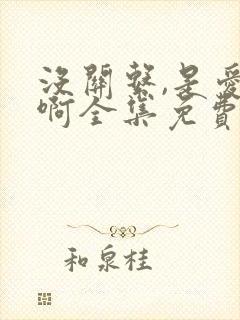 沒關繫,是愛
啊全集免費
和泉桂